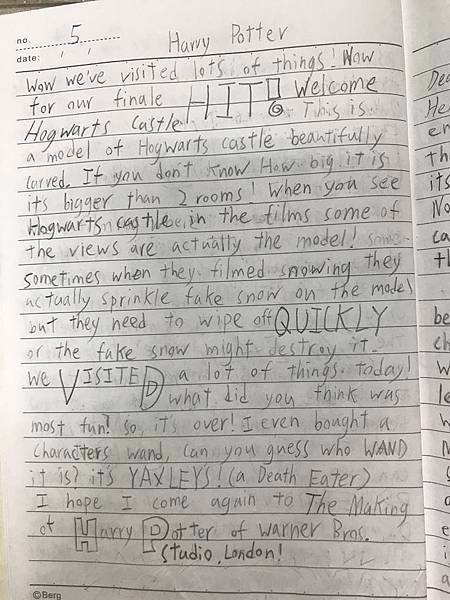 no. 5
Harry Potter
date: , ,
Wow we've visited lots of things! Now
for our finale HIT! Welcome
Hogwarts Castle. This is
a model of Hogwarts castle beautifully
carved. If you don't know How big it is
it's bigger than 2 rooms! When you see
Hogwarts castle in the films some of
the views are actually the model!
sometimes when they filmed snowing they
actually sprinkle fake snow on the model
but they need to wipe off QUICKLY
or the fake snow might destroy it.
We VISITED a lot of things today!
what did you think was
most fun? so, it's over! I even bought a
characters wand, can you guess who WAND
it is? it's YAXLEYS! (a Death Eater)
I hope I come again to The Making
of Harry Potter of Warner Bros.
Studio, London!
©Berg